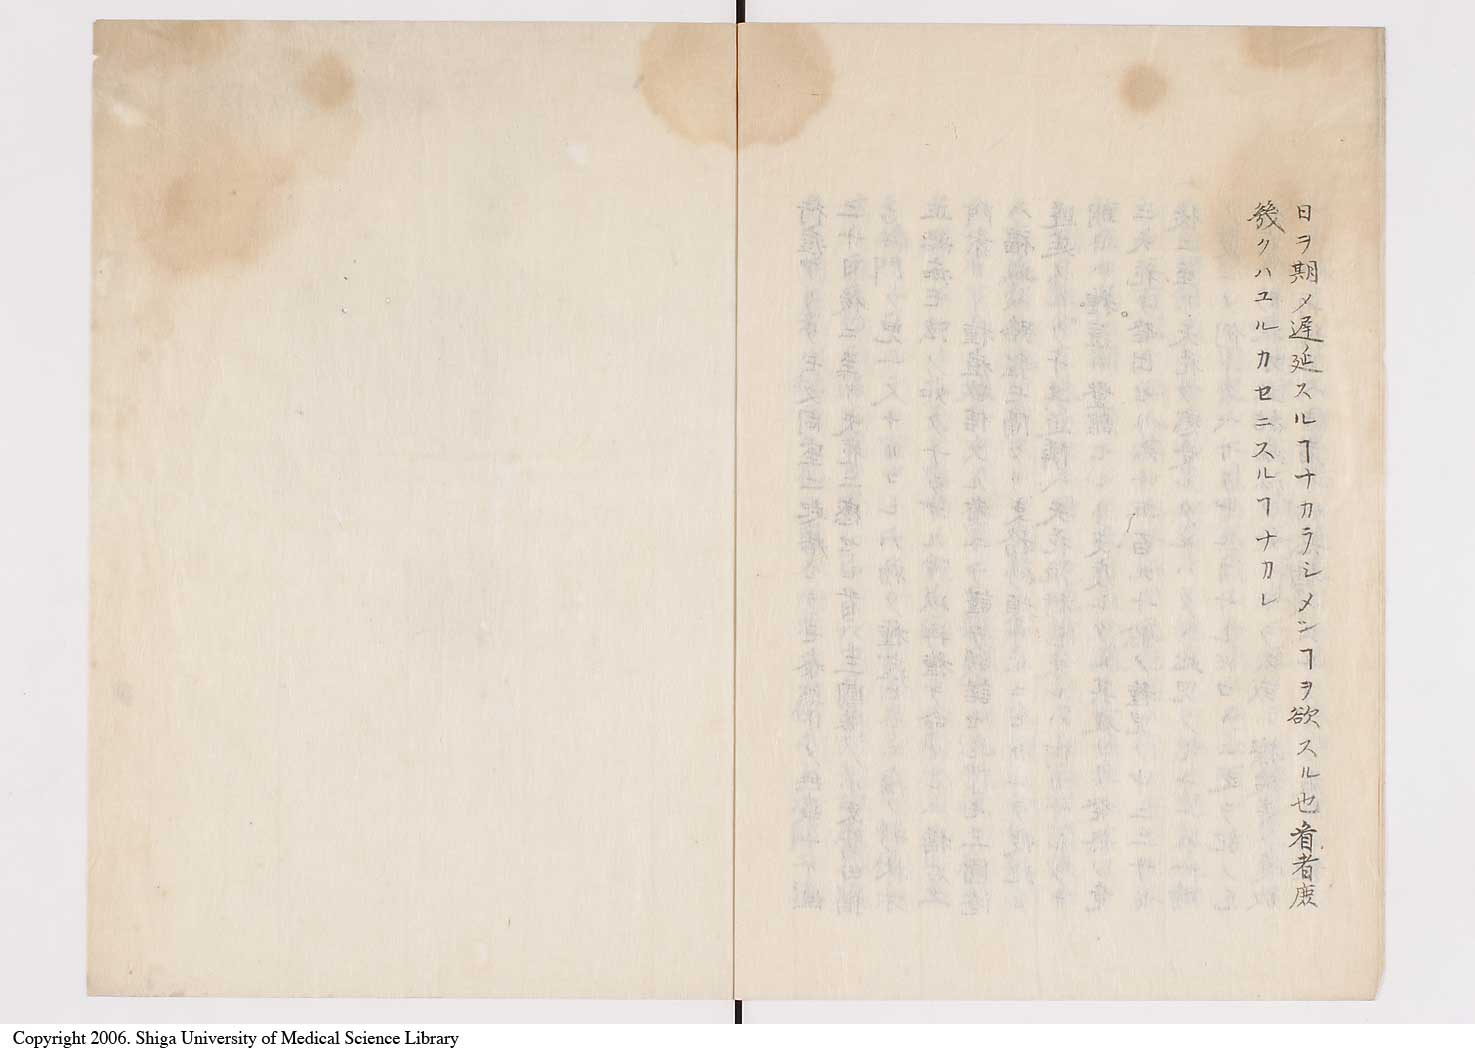 日ヲ期メ遅延スルヿナカラシメンヿヲ欲スル也看者庶
幾クハユルカセニスルヿナカレ
Copyright 2006. Shiga University of Medical Science Library